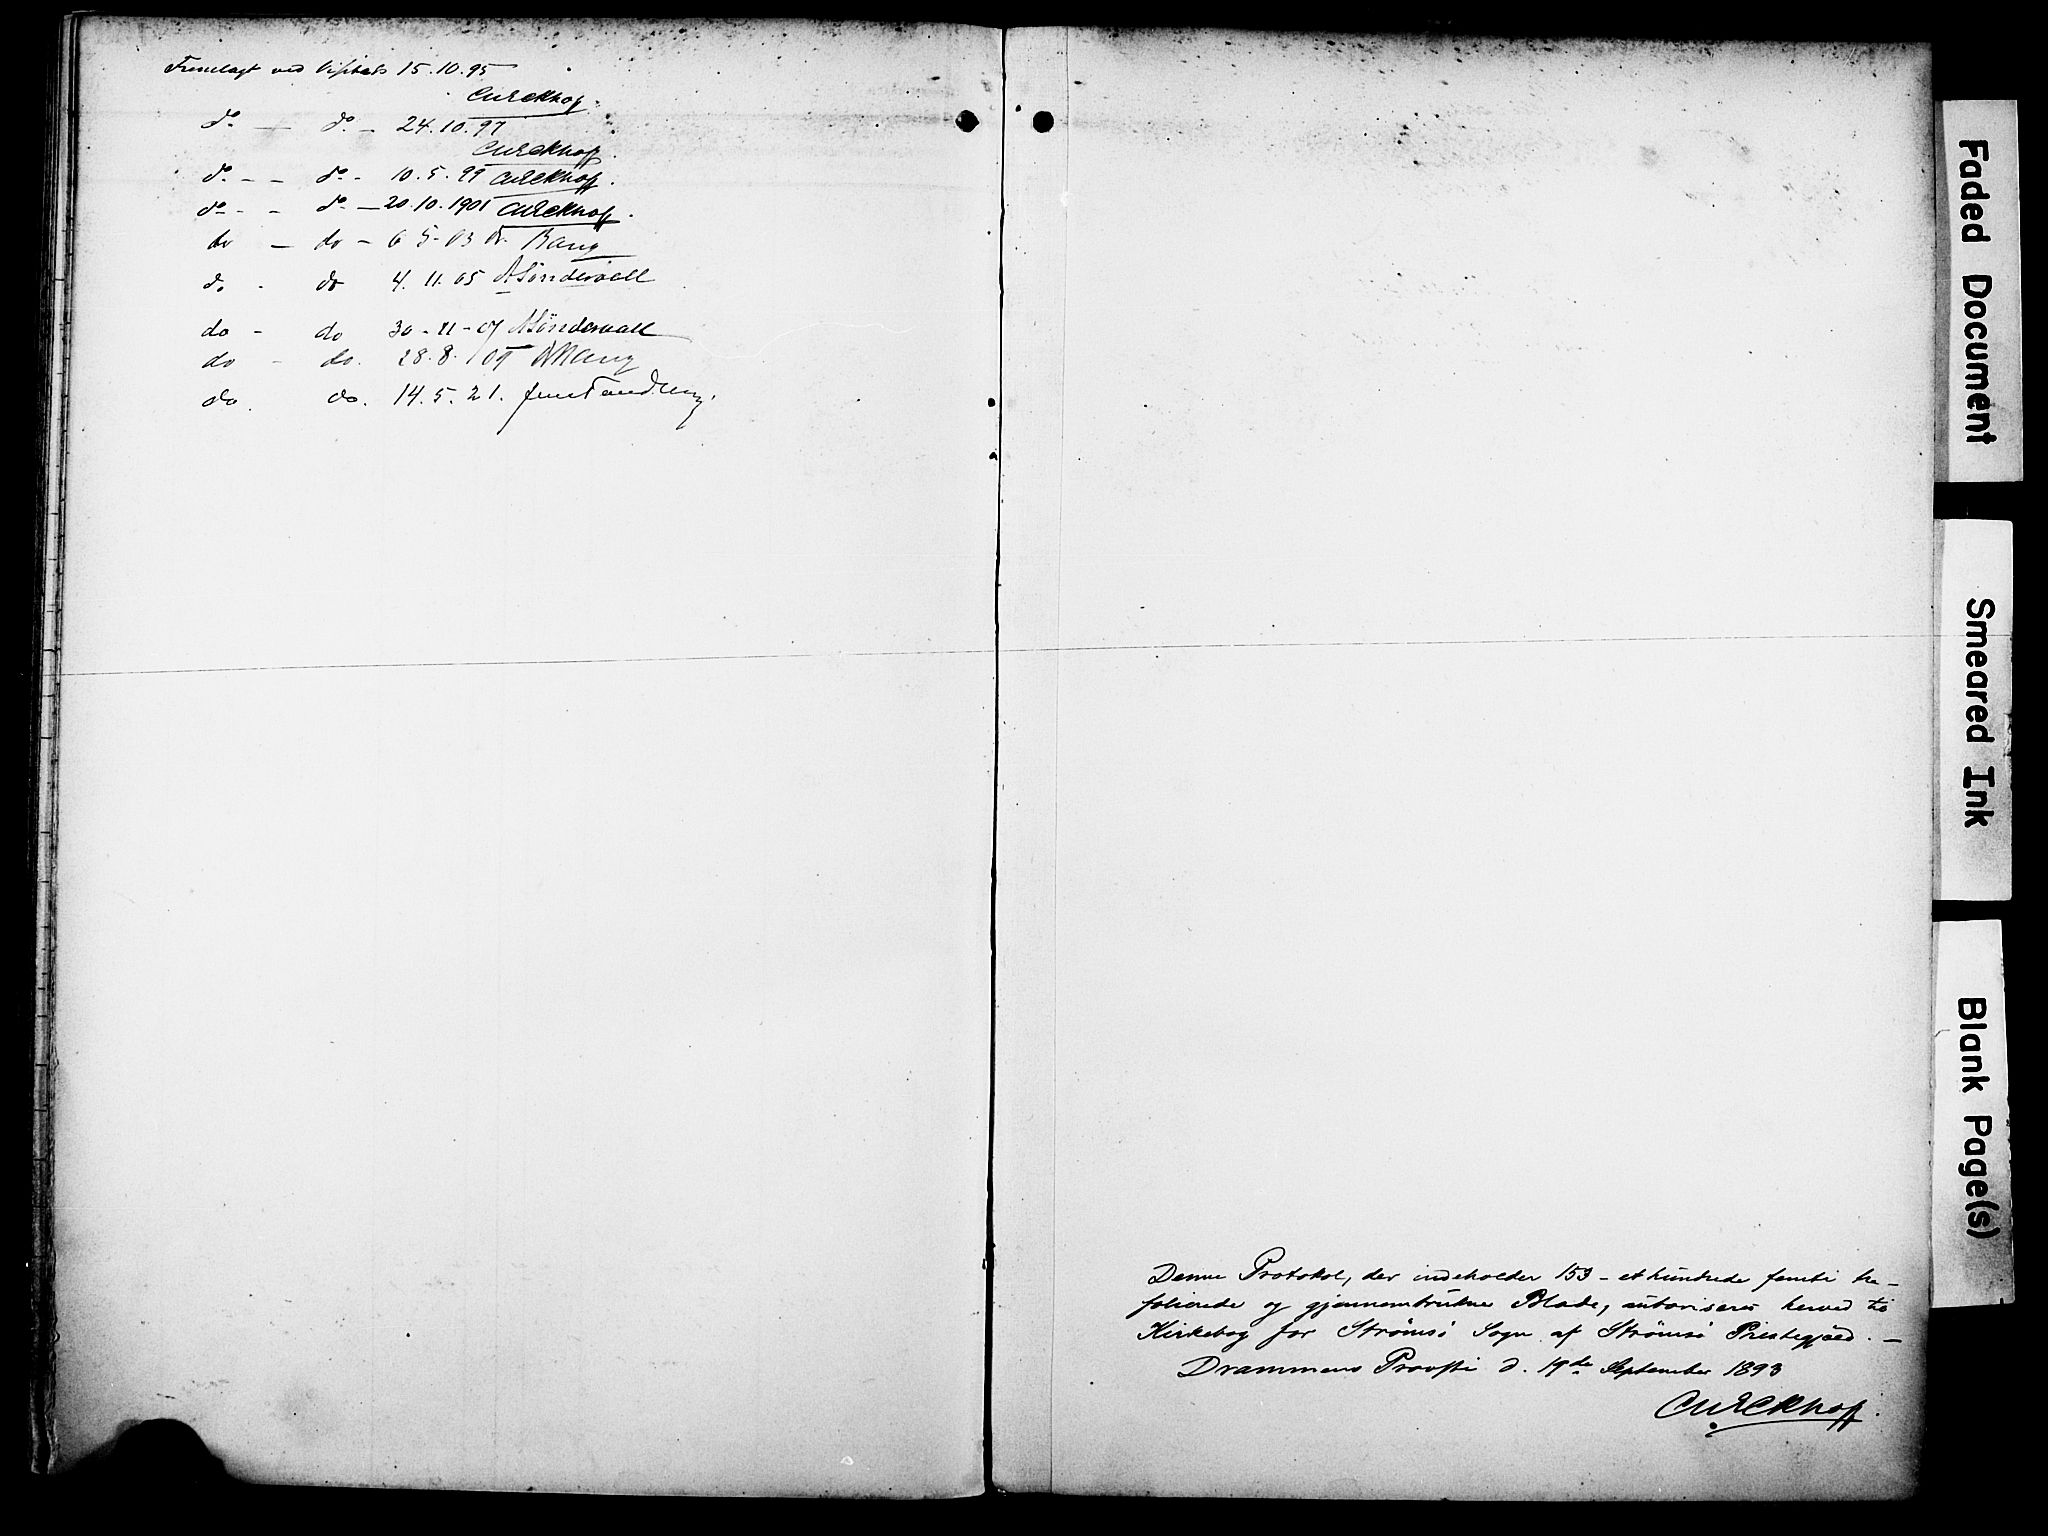 Fremlagt ved Visitats 15.10.95
CWEckhoff.
do — do — 24.10.97
CWEckhoff.
do - - do - 10.5.99 CWEckhoff.
do - - do — 20.10.1901 CWEckhoff.
do — do — 6 5. 03 Bang
do - do 4. 11. 05 Söndervall
do - do 30-11-07 Söndervall
do - do. 28.8. 09 Bang
do. do. 14.5.21. Jens Tandberg.
Denne Protokol, der indeholder 153 – et hundrede femti tre –
folierede og gjennemtrukne Blade, autoriseres herved til
Kirkebog for Strömsö Sogn af Strömsö Præstegjæld. —
Drammens Provsti d. 19de September 1893
CWEckhoff.
Faded Document
Smeared Ink
Blank Page(s)